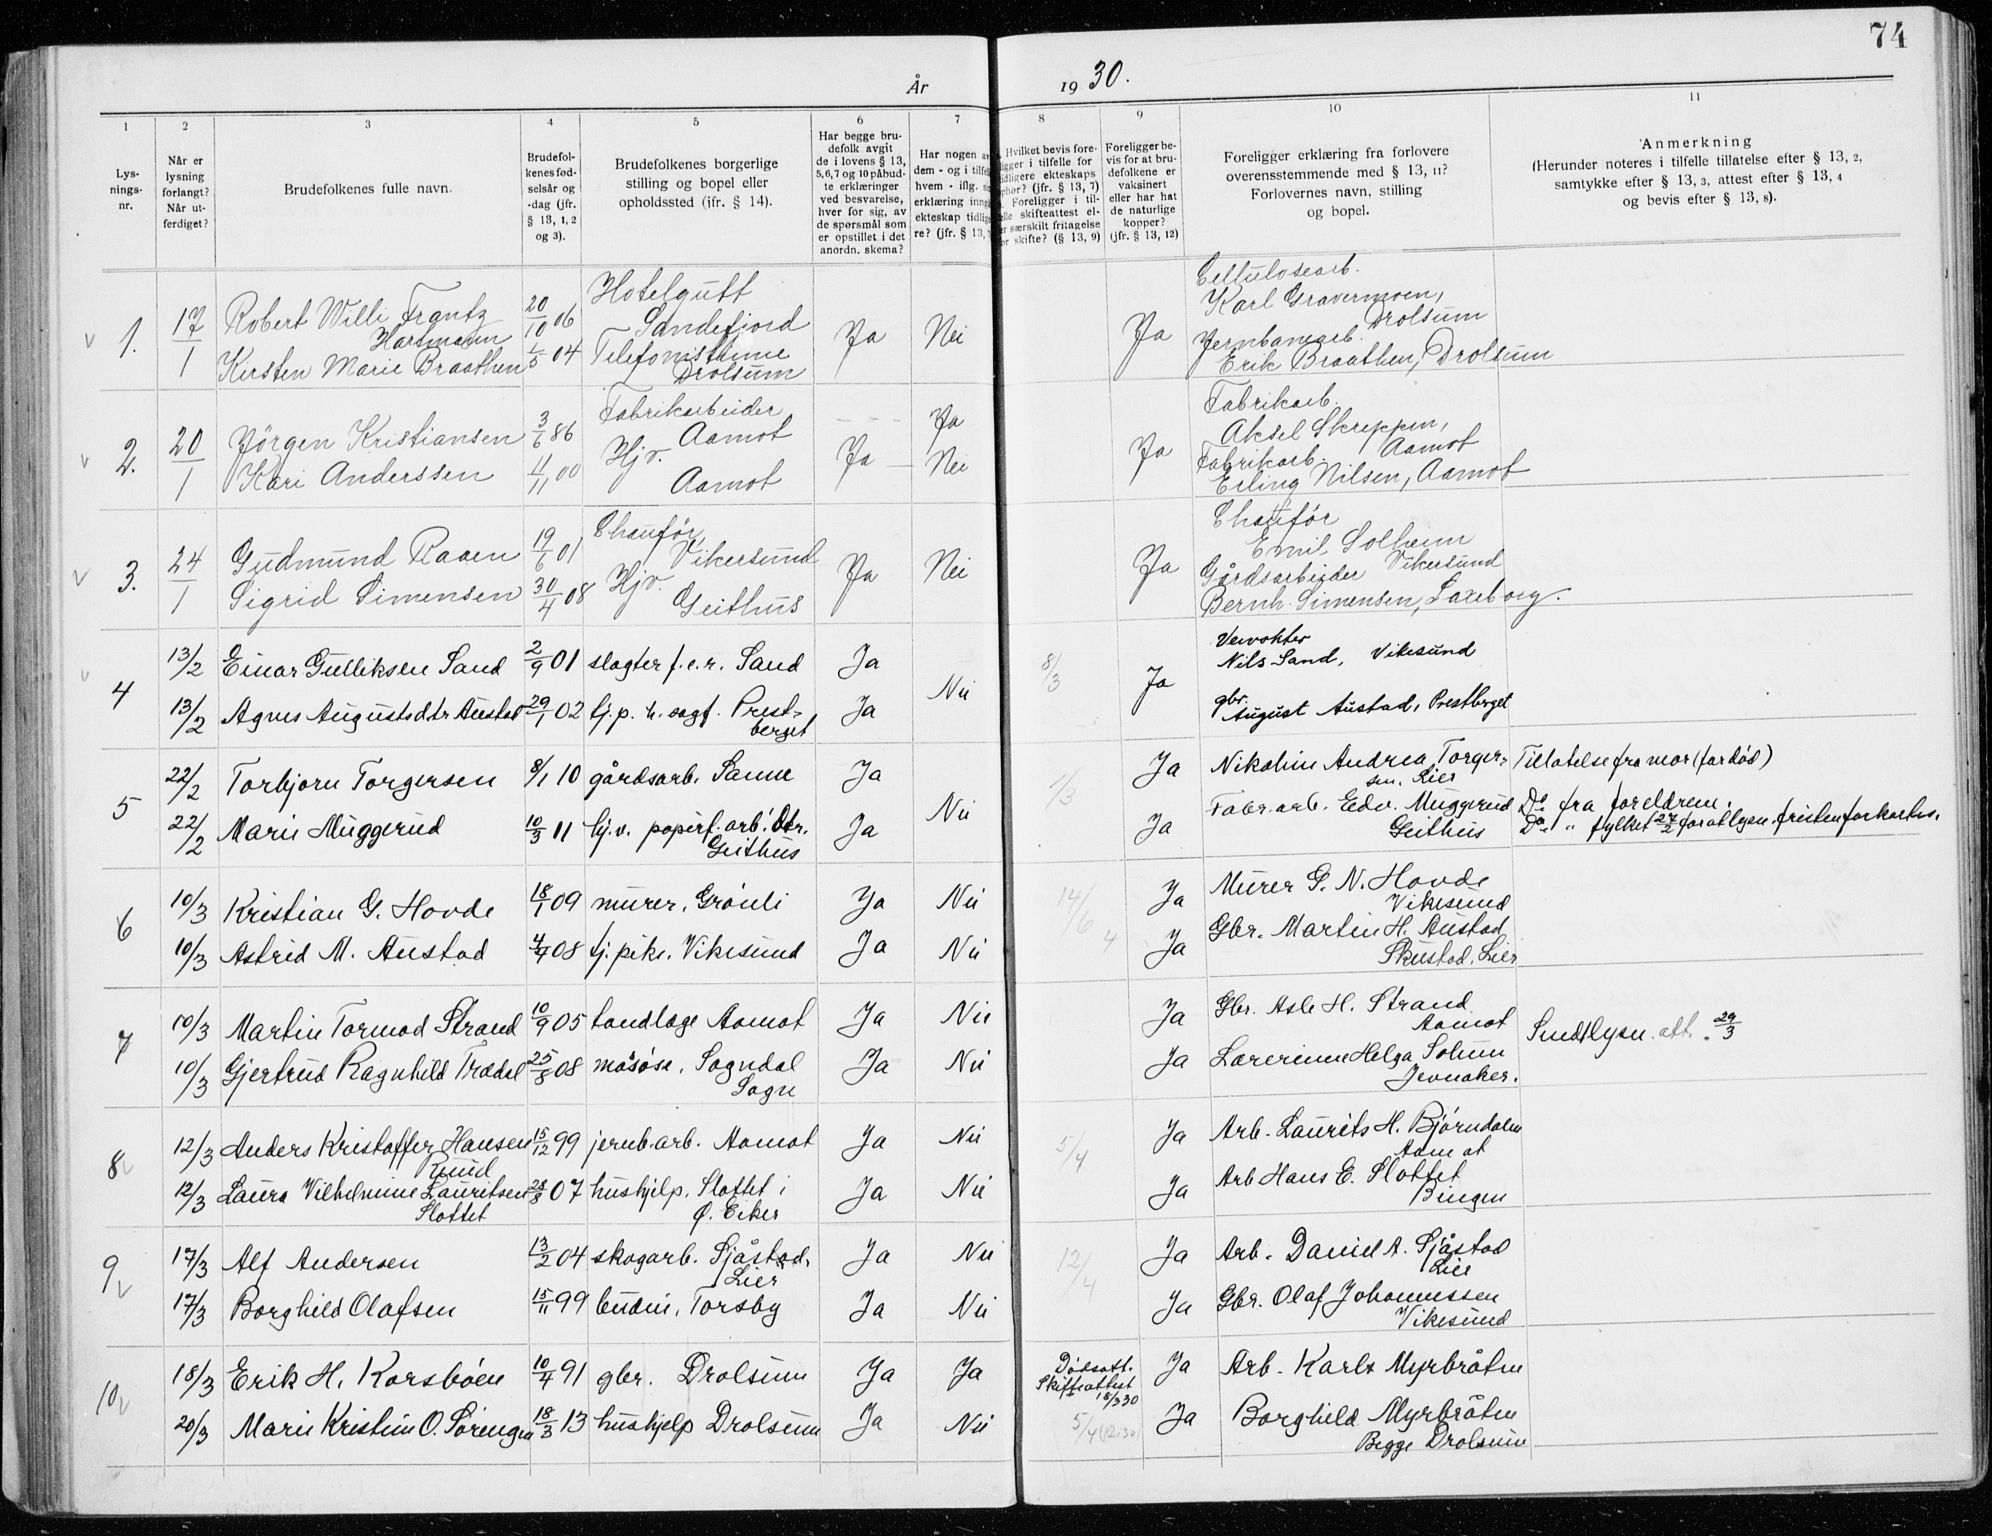 74
År 1930.
1 2 3 4 5 6 7 8 9 10 11
Lys-
nings-
nr.
Når er
lysning
forlangt?
Når ut-
ferdiget?
Brudefolkenes fulle navn.
Brudefol-
kenes fød-
selsår og
-dag (jfr.
§ 13, 1, 2
og 3).
Brudefolkenes borgerlige
stilling og bopel eller
opholdssted (jfr. § 14).
Har begge bru-
defolk avgit
de i lovens § 13,
5,6,7 og 10 påbud-
te erklæringer
ved besvarelse,
hver for sig, av
de spørsmål som
er opstillet i det
anordn. skema?
Har nogen av
dem - og i tilfe
hvem - iflg. s
erklæring inng
ekteskap tidlig
re? (jfr. § 13,
Hvilket bevis fore-
igger i tilfelle for
idligere ekteskaps
phør? (jfr. § 13, 7)
Foreligger i til-
elle skifteattest el-
er særskilt fritagelse
or skifte? (§ 13, 9)
Foreligger be-
vis for at bru-
defolkene er
vaksinert
eller har hat
de naturlige
kopper?
(jfr. § 13, 12)
Foreligger erklæring fra forlovere
overensstemmende med § 13, 11?
Forlovernes navn, stilling
og bopel.
Anmerkning
(Herunder noteres i tilfelle tillatelse efter § 13, 2,
samtykke efter § 13, 3, attest efter § 13, 4
og bevis efter § 13, 8).
1. 17/1 Robert Willi Frantz
Hartmann
20/10 06 Hotelgutt
Sandefjord
Kirsten Marie Braathen 1/5 04 Telefonistinne
Drolsum
Ja Nei Ja
Cellulosearb.
Karl Gravermoen,
Drolsum
Jernbanearb.
Erik Braathen, Drolsum
2. 20/1 Jörgen Kristiansen 3/6 86 Fabrikarbeider
Aamot
Ja
Kari Anderssen 4/11 00 Hjv.
Aamot
Ja Nei Ja
Fabrikarb.
Aksel Skreppen,
Aamot
Fabrikarb.
Erling Nilsen, Aamot
3. 24/1 Gudmund Raaen 19/6 01 Chauför,
Vikersund
Sigrid Simensen 30/4 08 Hjv.
Geithus
Ja Nei Ja
Chauför
Emil Solheim
Vikersund
Gårdsarbeider
Bernh. Simensen,
4 13/2 Einar Gulliksen Sand 2/9 01 slagter f.e.r. Sand Ja
13/2 Agnes Augustsdtr Austad 29/1 02 hj.p. h. Prest-
berget Ja
Nei 8/3 Ja
Nils Sand, Vikesund
gbr.
August Austad, Prestberget
5 22/2 Torbjorn Torgersen 8/1 10 gårdsarb. Sanne Ja
22/2 Marie Muggerud 10/3 11 hj.v. papirf.arb. dtr.
Geithus Ja
Nei 1/3
Ja Nikoline Andrea Torger-
sen. Lier
Tillatelse fra mor (far død)
Ja Fabr.arb. Edv. Muggerud
Geithus
Do fra foreldrene.
Do " fylket 27/2 for at lysn.fristen forkortes.
6 10/3 Kristian G. Hovde 18/1 09 murer, Grönli Ja Nei
10/3 Astrid M. Austad 4/4 08 tj.pike. Vikesund Ja Nei
14/6 4
Ja Murer G. N. Hovde
Vikesund
Ja Gbr. Martin H. Austad
Skustad, Lier
7 10/3 Martin Tormod Strand 10/9 05 tandlæge Aamot Ja Nei
10/3 Gjertrud Ragnhild Trædal 25/8 08 masöse, Sogndal
Sogn Ja Nei
Ja Gbr. Asle H. Strand
Aamot
Ja Lærerinne Helga Solum
Jevnaker.
Sendt lysn. att. 29/3
8 12/3 Anders Kristoffer Hansen
Ruud
15/12 99 jernb.arb. Aamot Ja Nei
12/3 Laura Vilhelmine Lauritsen
Slottet
28/8 07 hushjelp, Slottet i
Ø. Eiker Ja Nei
5/4
Ja Arb. Laurits H. Björndalen
Aamot
Ja Arb Hans E. Slottet
Bingen
9 17/3 Alf Andersen 13/2 04 skogarb. Sjåstad,
Lier Ja Nei
17/3 Borghild Olafsen 15/11 99 budeie, Torsby Ja Nei
12/4
Ja Arb. Daniel A. Sjåstad
Lier
Ja Gbr. Olaf Johannessen
Vikesund
10 18/3 Erik H. Korsböen 10/4 91 gbr. Drolsum Ja Ja
Dödsatt.
Skifteattest
18/3 30
20/3 Marie Kristine O. Sörengen 18/3 13 hushjelp Drolsum Ja Nei
5/4 (12.30)
Ja Arb. Karl Myrbråten
Ja Borghild Myrbråten
Begge Drolsum